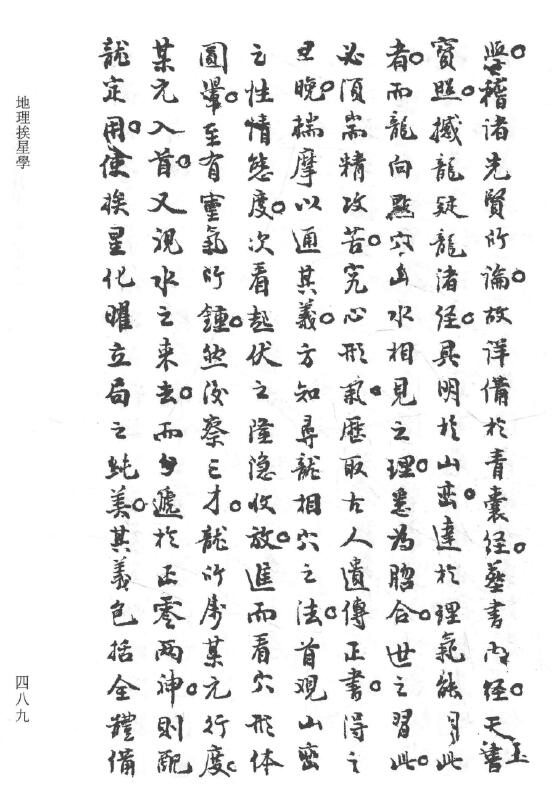 學稽諸先賢所論故詳備於青囊經葬書內經天玉
寶照撼龍疑龍渚經具明於山巒達於理氣能
者而龍向點穴山水相見之理悉為脗合世之習此
必須耑精攻苦究心形氣歷取古人遺傳正書得之
旦晚揣摩以通其義方知尋龍相穴之法首观山巒
之性情態度次看起伏之隆隐收放進而看穴形体
圓暈至有靈氣所鍾然後察三才龍所属某元行度
某元入首又視水之来去而分遞於正零兩神則配
龍定用使挨星化曜立局之純美其義包括全體備
地理挨星學
四八九